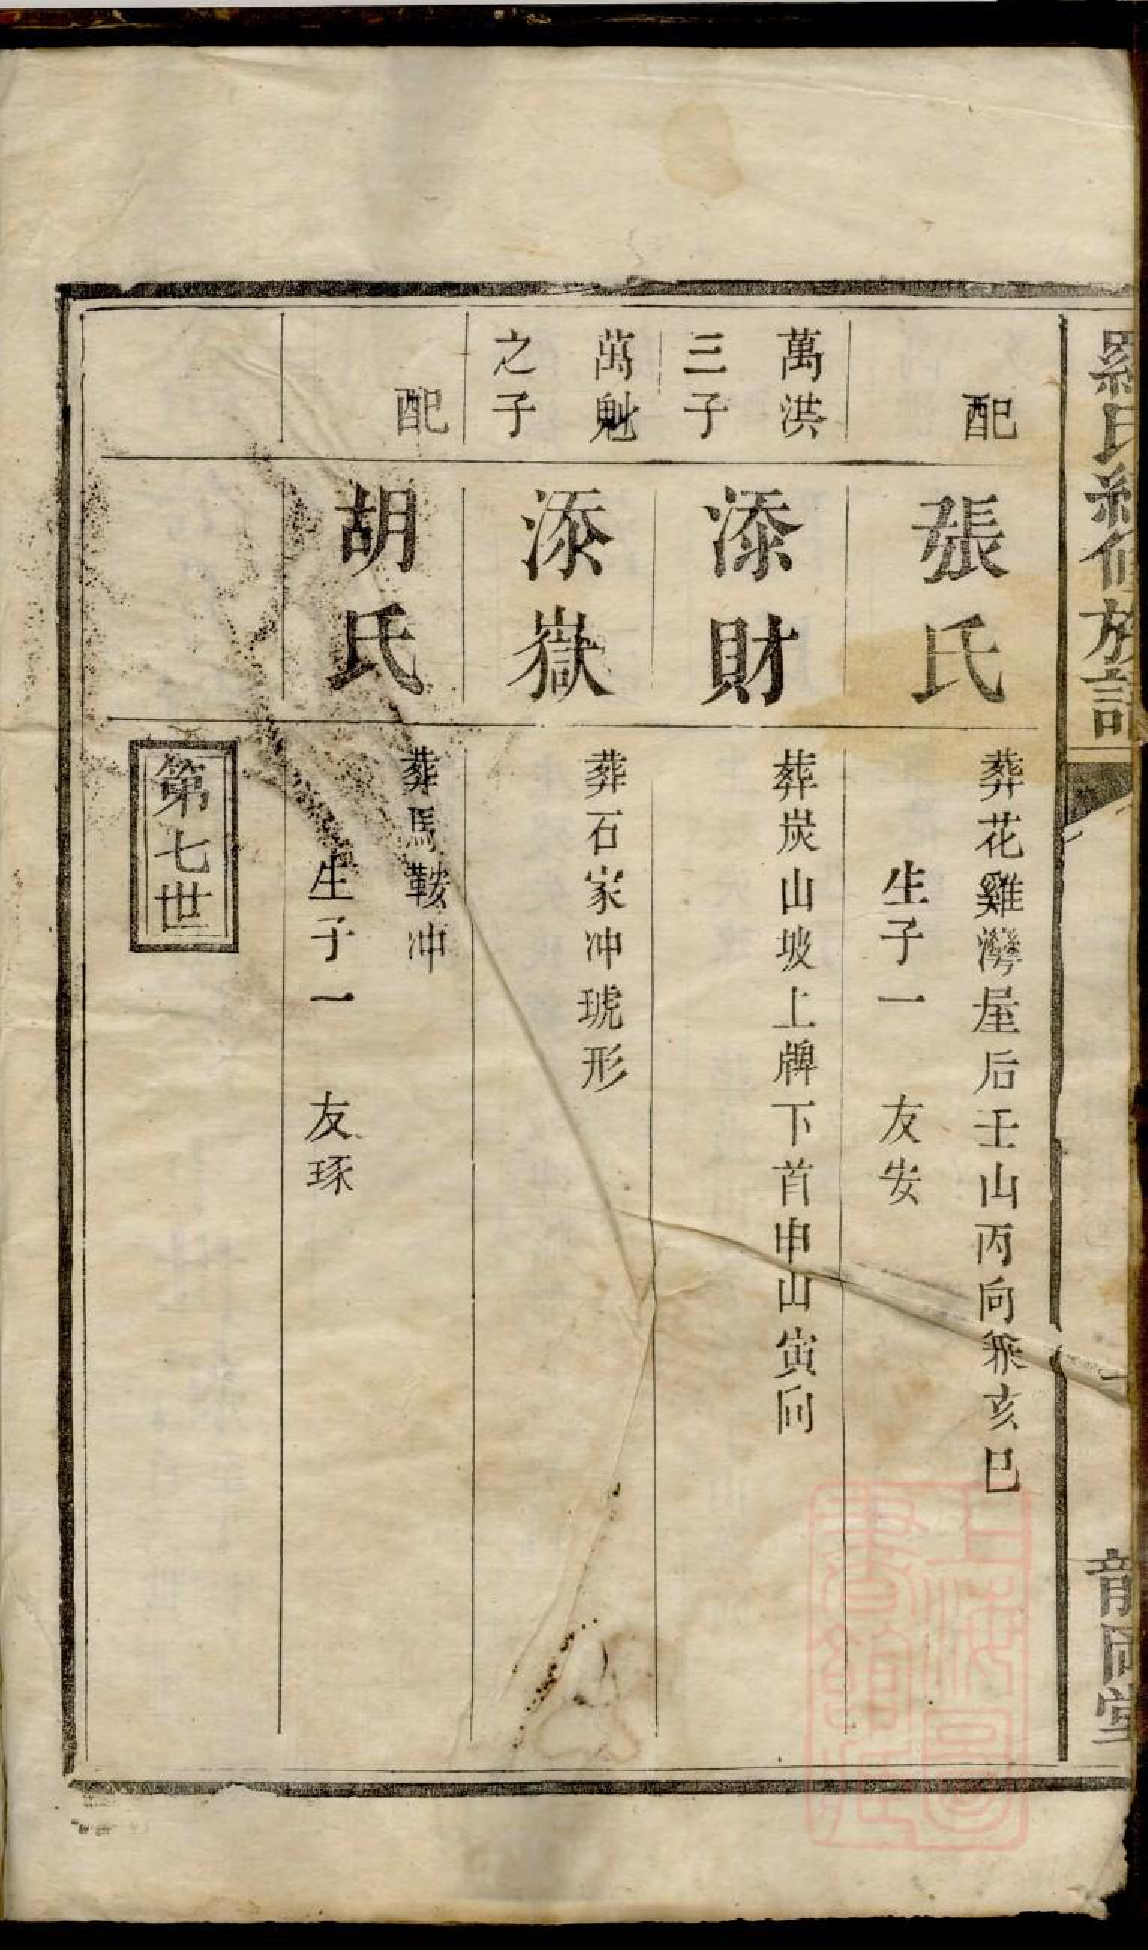 羅氏續修族譜
龍岡堂
配
張氏
葬花雞灣屋后壬山丙向兼亥巳
生子一 友安
萬洪
三子
添財
葬炭山坡上牌下首申山寅向
萬魁
之子
添嶽
葬石家冲琥形
配
胡氏
葬馬鞍冲
生子一 友琢
第七世
上海圖
書館藏